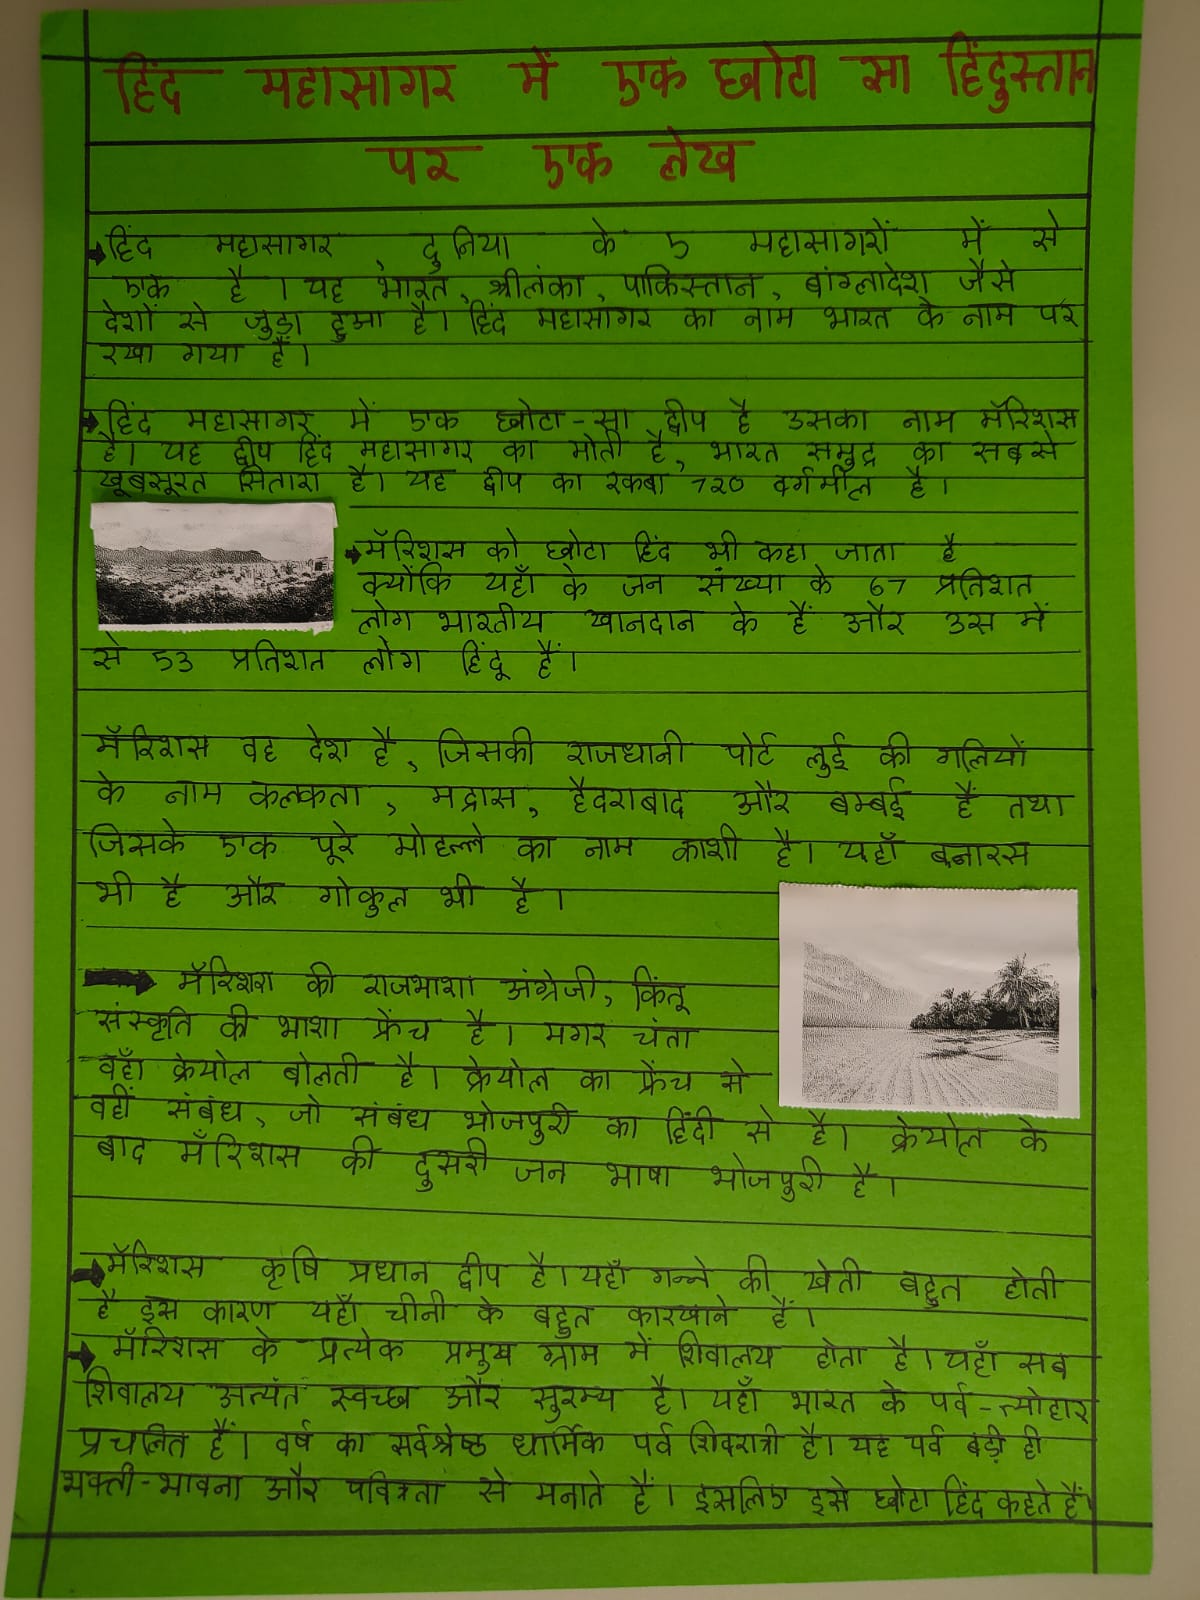 हिंद महासागर में एक छोटा सा हिंदुस्तान
पर एक लेख
हिंद महासागर दुनिया के 5 महासागरों में से
एक है । यह भारत, श्रीलंका, पाकिस्तान, बांग्लादेश जैसे
देशों से जुड़ा हुआ है। हिंद महासागर का नाम भारत के नाम पर
रखा गया है ।
हिंद महासागर में एक छोटा-सा द्वीप है उसका नाम मॅारिशस
है। यह द्वीप हिंद महासागर का मोती है, भारत समुद्र का सबसे
खूबसूरत सितारा है। यह द्वीप का रकबा 720 वर्गमील है ।
मॅारिशस को छोटा हिंद भी कहा जाता है
क्योंकि यहाँ के जन संख्या के 67 प्रतिशत
लोग भारतीय खानदान के हैं और उस में
से 53 प्रतिशत लोग हिंदू हैं।
मॅारिशस वह देश है, जिसकी राजधानी पोर्ट लुई की गलियों
के नाम कलकता, मद्रास, हैदराबाद और बम्बई हैं तथा
जिसके एक पूरे मोहल्ले का नाम काशी है। यहाँ बनारस
भी है और गोकुल भी है ।
मॅारिशस की राजभाशा अंग्रेजी, किंतू
संस्कृति की भाशा फ्रेंच है । मगर चंता
वहाँ क्रेयोल बोलती है। क्रेयोल का फ्रेंच से
वहीं संबंध, जो संबंध भोजपुरी का हिंदी से है। क्रेयोल के
बाद मॅारिशस की दुसरी जन भाषा भोजपुरी है ।
मॅारिशस कृषि प्रधान द्वीप है। यहाँ गन्ने की खेती बहुत होती
है इस कारण यहाँ चीनी के बहुत कारखाने हैं ।
मॅारिशस के प्रत्येक प्रमुख ग्राम में शिवालय होता है। यहाँ सब
शिवालय अत्यंत स्वच्छ और सुरम्य है। यहाँ भारत के पर्व-त्योहार
प्रचलित हैं। वर्ष का सर्वश्रेष्ठ धार्मिक पर्व शिवरात्री है। यह पर्व बड़ी ही
भक्ती-भावना और पवित्रता से मनाते हैं । इसलिए इसे छोटा हिंद कहते हैं।